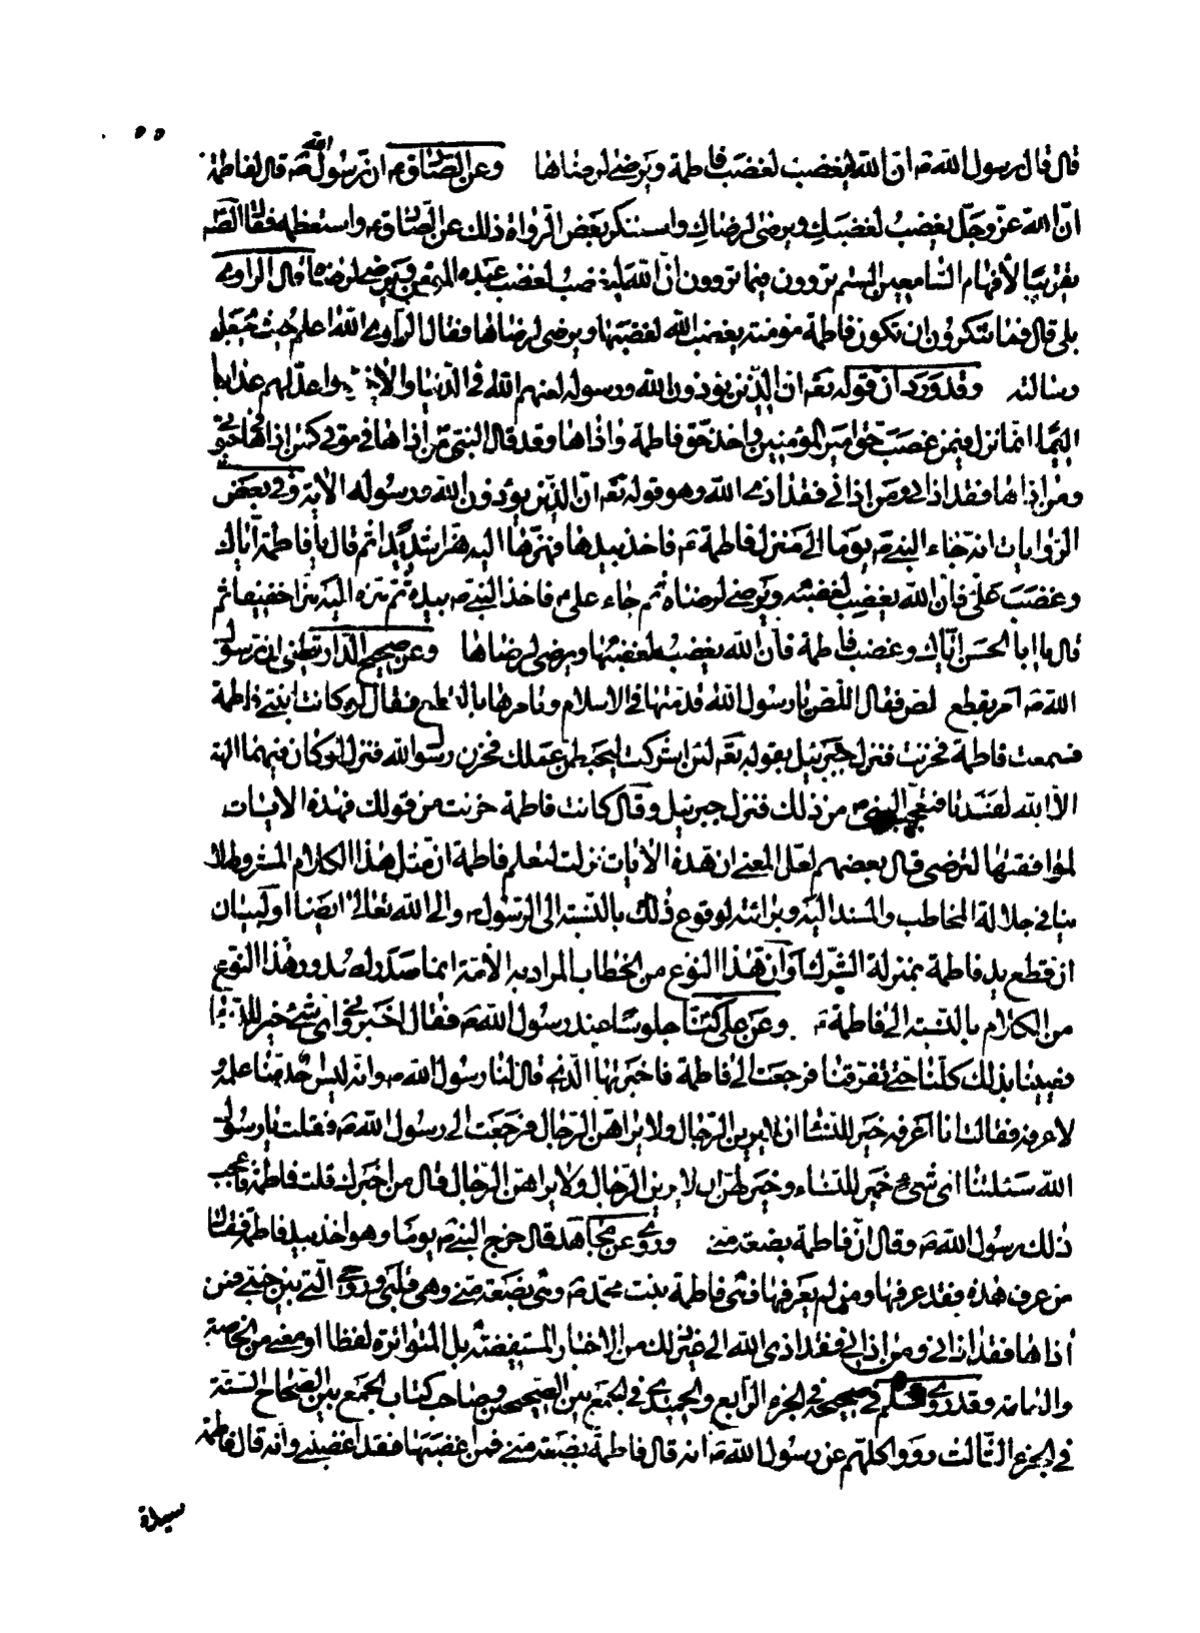 قال قال رسول الله ص ان الله ليغضب لغضب فاطمة ويرضى لرضاها وعن الصادق ع ان رسول الله ص قال لفاطمة
ان الله عز وجل يغضب لغضبك ويرضى لرضاك واستنكر بعض الرواة ذلك عن الصادق ع واستعظمه فقال الصـ
تقريبا لأفهام السامعين الستم تروون فيما تروون ان الله ليغضب لغضب عبده المؤمن ويرضى لرضاه قال الراوي
بلى قال فما تنكرون ان تكون فاطمة مؤمنة يغضب الله لغضبها ويرضى لرضاها فقال الراوي الله اعلم حيث يجعل
رسالته وقد ورد ان قوله تعه ان الذين يؤذون الله ورسوله لعنهم الله في الدنيا والآخرة واعد لهم عذابا
اليما انما نزل فيمن غصب حق امير المؤمنين واخذ حق فاطمة واذاها وقد قال النبي ص من اذاها في موتي كمن اذاها في حيوتي
ومن اذاها فقد اذاني ومن اذاني فقد اذى الله وهو قوله تعه ان الذين يؤذون الله ورسوله الآية وفي بعض
الروايات انه جاء النبي ص يوما الى منزل فاطمة ع فاخذ بيدها فهزها اليه هزا شديدا ثم قال يا فاطمة اياك
وغضب علي فان الله يغضب لغضبه ويرضى لرضاه ثم جاء علي ع فاخذ النبي ص بيده ثم هزه اليه هزا خفيفا ثم
قال يا ابا الحسن اياك وغضب فاطمة فان الله يغضب لغضبها ويرضى لرضاها وعن صحيح الدارقطني ان رسول
الله ص امر بقطع لص فقال اللص يا رسول الله قدمتها في الاسلام وتامرها بالقطع فقال لو كانت ابنتي فاطمة
فسمعت فاطمة فحزنت فنزل جبرئيل بقوله تعه لئن اشركت ليحبطن عملك فحزن رسول الله فنزل لو كان فيهما الهة
الا الله لفسدتا فتعجب النبي ص من ذلك فنزل جبرئيل وقال كانت فاطمة حزنت من قولك فهذه الآيات
لموافقتها لترضى قال بعضهم لعل المعنى ان هذه الآيات نزلت لتعلم فاطمة ان مثل هذا الكلام المشروط لا
ينافي جلالة المخاطب والمسند اليه وبرائته لوقوع ذلك بالنسبة الى الرسول ص والى الله تعالى ايضا او لبيان
ان قطع يد فاطمة بمنزلة الشرك او ان هذا النوع من الخطاب المراد به الأمة انما صدر لصدور هذا النوع
من الكلام بالنسبة الى فاطمة ع وعن علي كنا جلوسا عند رسول الله ص فقال اخبروني اي شيء خير للنساء
فعيينا بذلك كلنا حتى تفرقنا فرجعت الى فاطمة فاخبرتها الذي قال لنا رسول الله ص وانه ليس احد منا علمه و
لا عرفه فقالت انا اعرفه خير للنساء ان لا يرين الرجال ولا يراهن الرجال فرجعت الى رسول الله ص فقلت يا رسول
الله سئلتنا اي شيء خير للنساء وخير لهن ان لا يرين الرجال ولا يراهن الرجال قال من اخبرك قلت فاطمة فاعجب
ذلك رسول الله ص وقال ان فاطمة بضعة مني وروي عن مجاهد قال خرج النبي ص يوما وهو اخذ بيد فاطمة فقال
من عرف هذه فقد عرفها ومن لم يعرفها فهي فاطمة بنت محمد ص وهي بضعة مني وهي قلبي وروحي التي بين جنبي فمن
أذاها فقد اذاني ومن اذاني فقد اذى الله الى غير ذلك من الاخبار المستفيضة بل المتواترة لفظا او معنى من الخاصة
والعامة وقد روى مسلم في صحيحه في الجزء الرابع والحميدي في الجمع بين الصحيحين وصاحب كتاب الجمع بين الصحاح الستة
في الجزء الثالث رووا كلهم عن رسول الله ص انه قال فاطمة بضعة مني فمن اغضبها فقد اغضبني وانه قال فاطمة
سيدة